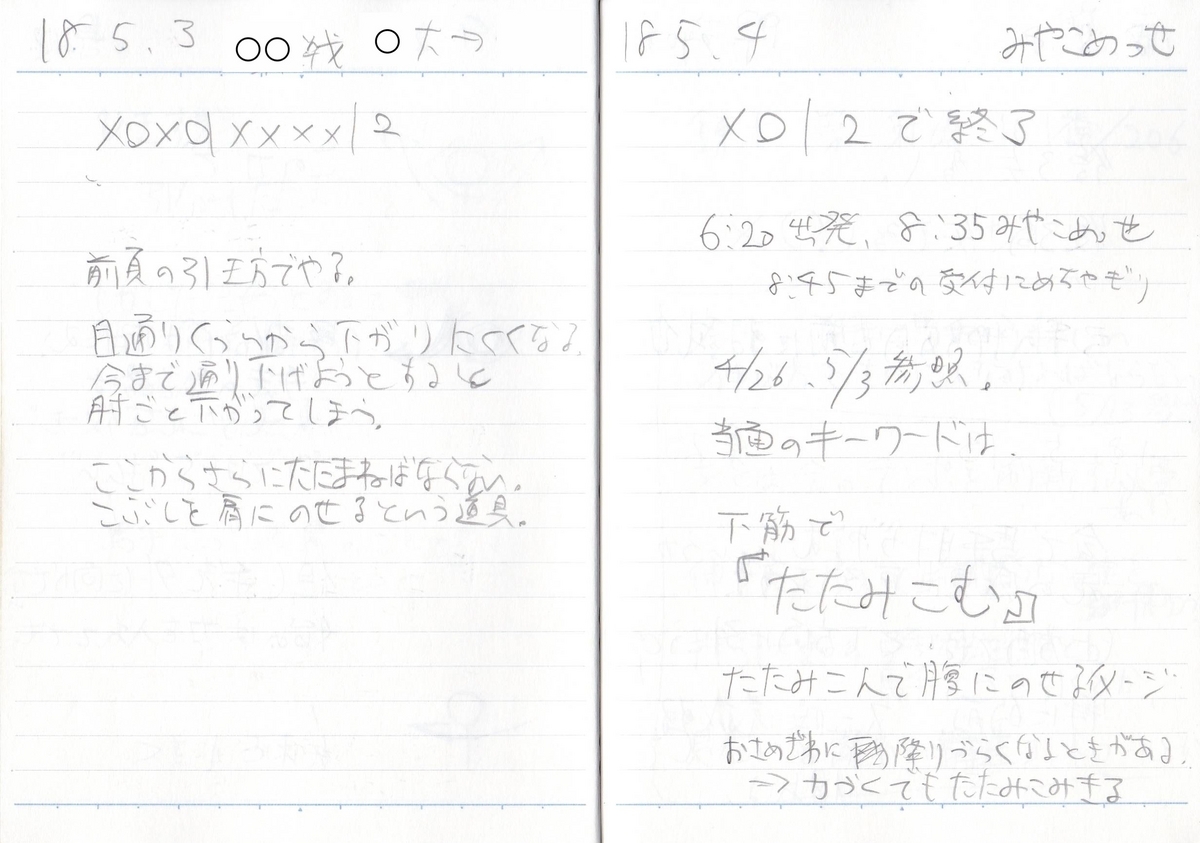 18.5.3 ○○戦 ○大⇒
XOXO|XXXX|2
前頁の引き方でやる。
目通りくらいから下がりにくくなる。
今まで通り下げようとすると
肘ごと下がってしまう。
ここからさらにたたまねばならない。
こぶしを肩にのせるという道具。
18.5.4 みやこめっせ
XO|2で終了
6:20出発、8:35みやこめっせ
8:45までの受付にめちゃギリ
4/26、5/3参照。
当面のキーワードは、
下筋で
『たたみこむ』
たたみこんで腹にのせるイメージ
おさめぎわに降りづらくなるときがある。
⇒力づくでもたたみこみきる